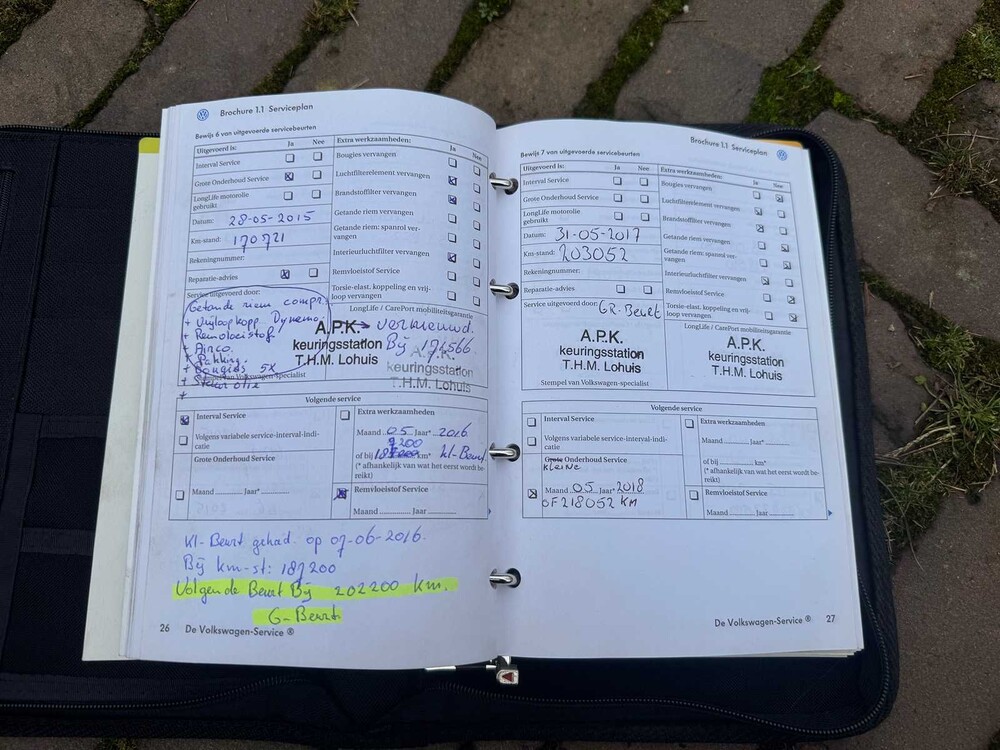 Brochure 1.1 Serviceplan
Bewijs 6 van uitgevoerde servicebeurten
Uitgevoerd is: Ja Nee
Interval Service
Grote Onderhoud Service
LongLife motorolie
gebruikt
Datum: 28-05-2015
Km-stand: 170721
Rekeningnummer:
Reparatie-advies
Service uitgevoerd door:
Getande riem compr.
+ Vrijloopkopp. Dynamo
+ Remvloeistof
+ Airco.
+ Pakking.
+ Bougies 5x
+ Stuur olie
Extra werkzaamheden: Ja Nee
Bougies vervangen
Luchtfilterelement vervangen
Brandstoffilter vervangen
Getande riem vervangen
Getande riem: spanrol ver-
vangen
Interieurluchtfilter vervangen
Remvloeistof Service
Torsie-elast. koppeling en vrij-
loop vervangen
LongLife / CarePort mobiliteitsgarantie
vernieuwd.
Bij 174566
A.P.K.
keuringsstation
T.H.M. Lohuis
A.P.K.
keuringsstation
T.H.M. Lohuis
Stempel van Volkswagen-specialist
Volgende service
Interval Service
Volgens variabele service-interval-indi-
catie
Grote Onderhoud Service
Maand Jaar*
Extra werkzaamheden
Maand 05 Jaar* 2016
of bij km* kl-Beurt
(* afhankelijk van wat het eerst wordt be-
reikt)
Remvloeistof Service
Maand Jaar
Kl-Beurt gehad. op 07-06-2016.
Bij km-st: 187200
Volgende Beurt Bij 202200 km.
G-Beurt
26 De Volkswagen-Service ®
Brochure 1.1 Serviceplan
Bewijs 7 van uitgevoerde servicebeurten
Uitgevoerd is: Ja Nee
Interval Service
Grote Onderhoud Service
LongLife motorolie
gebruikt
Datum: 31-05-2017
Km-stand: 203052
Rekeningnummer:
Reparatie-advies
Service uitgevoerd door: GR-Beurt
A.P.K.
keuringsstation
T.H.M. Lohuis
Stempel van Volkswagen-specialist
Extra werkzaamheden: Ja Nee
Bougies vervangen
Luchtfilterelement vervangen
Brandstoffilter vervangen
Getande riem vervangen
Getande riem: spanrol ver-
vangen
Interieurluchtfilter vervangen
Remvloeistof Service
Torsie-elast. koppeling en vrij-
loop vervangen
LongLife / CarePort mobiliteitsgarantie
A.P.K.
keuringsstation
T.H.M. Lohuis
Volgende service
Interval Service
Volgens variabele service-interval-indi-
catie
Grote Onderhoud Service
Kleine
Maand 05 Jaar* 2018
OF 218052 KM
Extra werkzaamheden
Maand Jaar*
of bij km*
(* afhankelijk van wat het eerst wordt be-
reikt)
Remvloeistof Service
Maand Jaar
De Volkswagen-Service ® 27